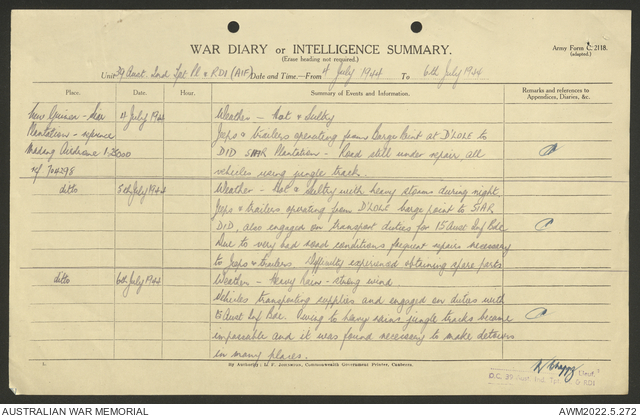 WAR DIARY or INTELLIGENCE SUMMARY.
(Erase heading not required.)
Army Form C. 2118.
(adapted.)
Unit 39 Aust. Ind. Tpt Pl & RDI (AIF) Date and Time.—From 4 July 1944 To 6th July 1944
Place. Date. Hour. Summary of Events and Information. Remarks and references to
Appendices, Diaries, &c.
New Guinea - Siar 4 July 1944 Weather - Hot & Sultry
Plantation - Jeeps & trailers operating from Barge Point at D'LOLE to
Madang DID SIAR Plantation - Road still under repair, all
ref 704298 vehicles using jungle track.
ditto 5th July 1944 Weather - Hot & Sultry with heavy storms during night
Jeeps & trailers operating from D'LOLE barge point to SIAR
DID, also engaged on transport duties for 15 Aust Inf Bde
Due to very bad road conditions frequent repairs necessary
to Jeeps & trailers. Difficulty experienced obtaining spare parts
ditto 6th July 1944 Weather - Heavy Rain - strong wind
Vehicles transporting supplies and engaged on duties with
15 Aust Inf Bde. Owing to heavy rains jungle tracks became
impassable and it was found necessary to make detours
in many places.
By Authority: Commonwealth Government Printer, Canberra.
O.C. 39 Aust. Ind. Tpt.
AUSTRALIAN WAR MEMORIAL
AWM2022.5.272